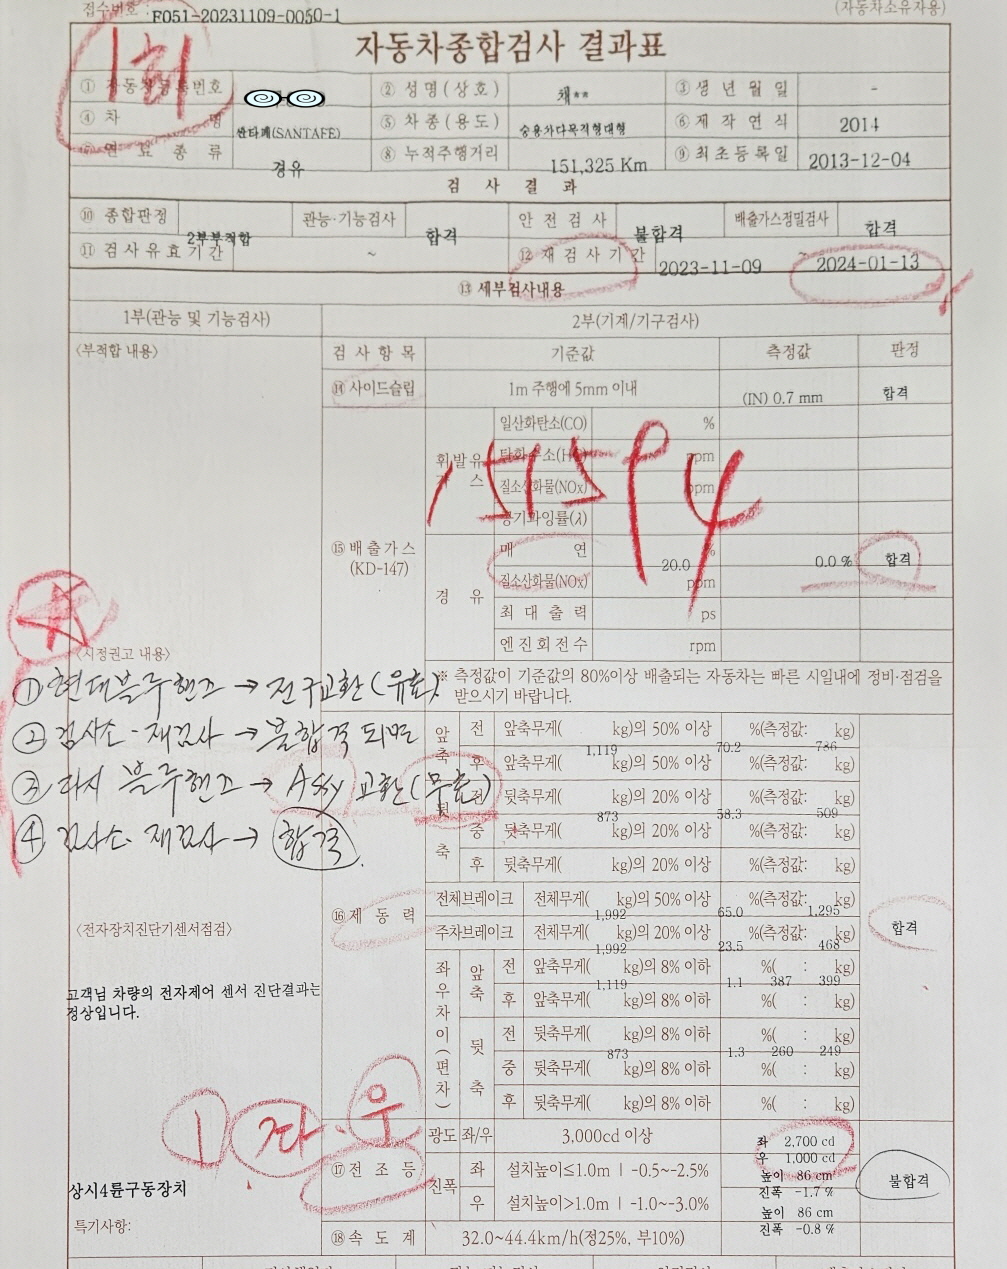 접수번호 : F051-20231109-0050-1
(자동차소유자용)
자동차종합검사 결과표
1회
① 자동차등록번호 ② 성명(상호) 채** ③ 생년월일 -
④ 차 명 싼타페(SANTAFE) ⑤ 차종(용도) 승용차다목적형대형 ⑥ 제작연식 2014
⑦ 연료종류 경유 ⑧ 누적주행거리 151,325 Km ⑨ 최초등록일 2013-12-04
검 사 결 과
⑩ 종합판정 2부부적합 관능·기능검사 합격 안전검사 불합격 배출가스정밀검사 합격
⑪ 검사유효기간 ~ ⑫ 재검사기간 2023-11-09 ~ 2024-01-13
⑬ 세부검사내용
1부(관능 및 기능검사) 2부(기계/기구검사)
〈부적합 내용〉 검사항목 기준값 측정값 판정
⑭ 사이드슬립 1m 주행에 5mm 이내 (IN) 0.7 mm 합격
일산화탄소(CO) %
휘발유 탄화수소(HC) ppm
스 질소산화물(NOx) ppm
공기과잉률(λ)
⑮ 배출가스 (KD-147)
경 유
매 연 20.0 % 0.0 % 합격
질소산화물(NOx) ppm
최대출력 ps
엔진회전수 rpm
〈시정권고 내용〉
※ 측정값이 기준값의 80%이상 배출되는 자동차는 빠른 시일내에 정비·점검을
받으시기 바랍니다.
① 현대블루핸즈 → 전구교환(유효)
② 검사소·재검사 → 불합격 되면
③ 다시 블루핸즈 → Assy 교환(무효)
④ 검사소·재검사 → 합격.
앞축 전 앞축무게( kg)의 50% 이상 %(측정값: kg)
1,119 70.2 786
후 앞축무게( kg)의 50% 이상 %(측정값: kg)
뒷축 전 뒷축무게( kg)의 20% 이상 %(측정값: kg)
873 58.3 509
중 뒷축무게( kg)의 20% 이상 %(측정값: kg)
후 뒷축무게( kg)의 20% 이상 %(측정값: kg)
⑯ 제동력
전체브레이크 전체무게( kg)의 50% 이상 %(측정값: kg)
1,992 65.0 1,295
합격
주차브레이크 전체무게( kg)의 20% 이상 %(측정값: kg)
1,992 23.5 468
〈전자장치진단기센서점검〉
고객님 차량의 전자제어 센서 진단결과는
정상입니다.
좌우차이(편차)
앞축 전 앞축무게( kg)의 8% 이하 %( : kg)
1,119 1.1 387 399
후 앞축무게( kg)의 8% 이하 %( : kg)
뒷축 전 뒷축무게( kg)의 8% 이하 %( : kg)
873 1.3 260 249
중 뒷축무게( kg)의 8% 이하 %( : kg)
후 뒷축무게( kg)의 8% 이하 %( : kg)
① 좌.우
⑰ 전조등
광도 좌/우 3,000cd 이상 좌 2,700 cd
우 1,000 cd
불합격
진폭 좌 설치높이≤1.0m | -0.5~-2.5% 높이 86 cm
진폭 -1.7 %
우 설치높이>1.0m | -1.0~-3.0% 높이 86 cm
진폭 -0.8 %
상시4륜구동장치
특기사항:
⑱ 속도계 32.0~44.4km/h(정25%, 부10%)